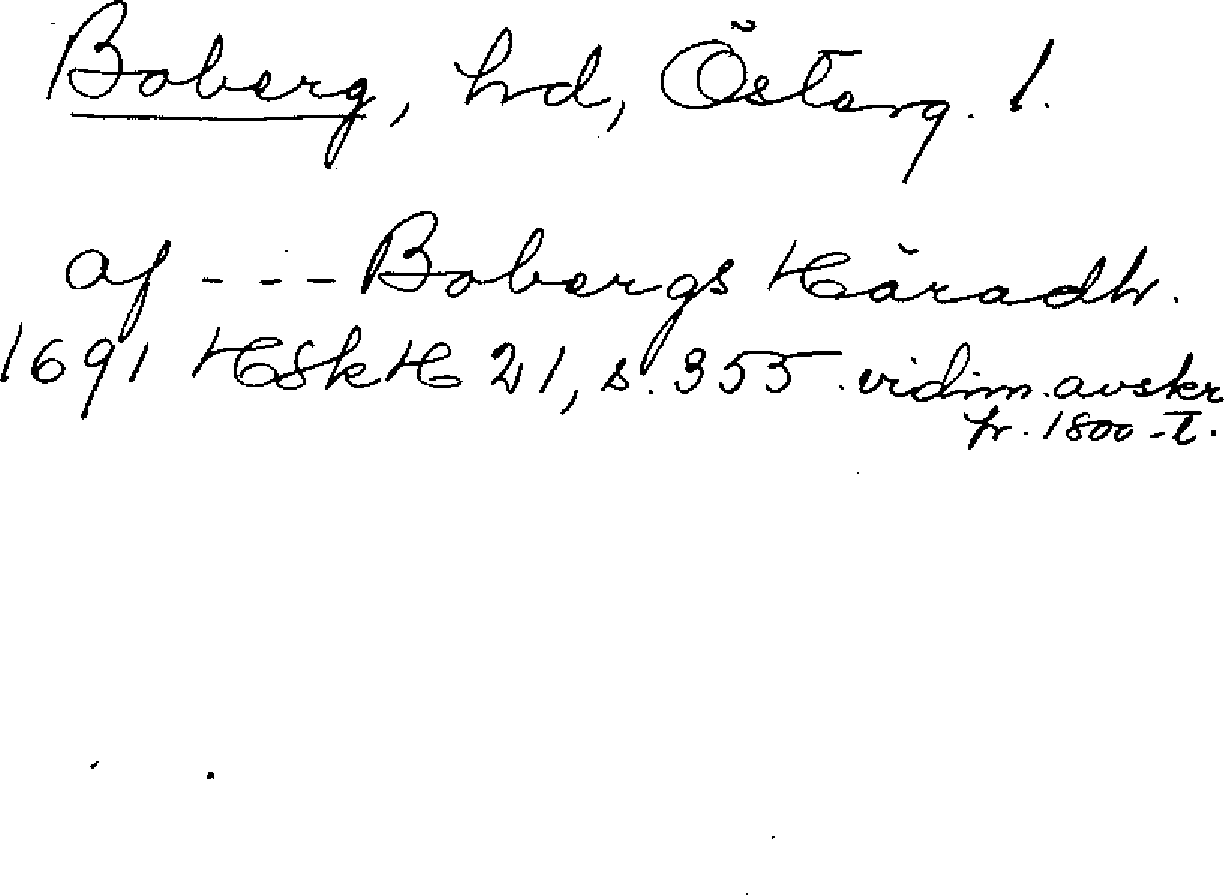 Boberg, hd, Österg. l.
af - - - Bobergs Häradh.
1691 HSkH 21, s. 355 vidim. avskr
fr. 1800-t.